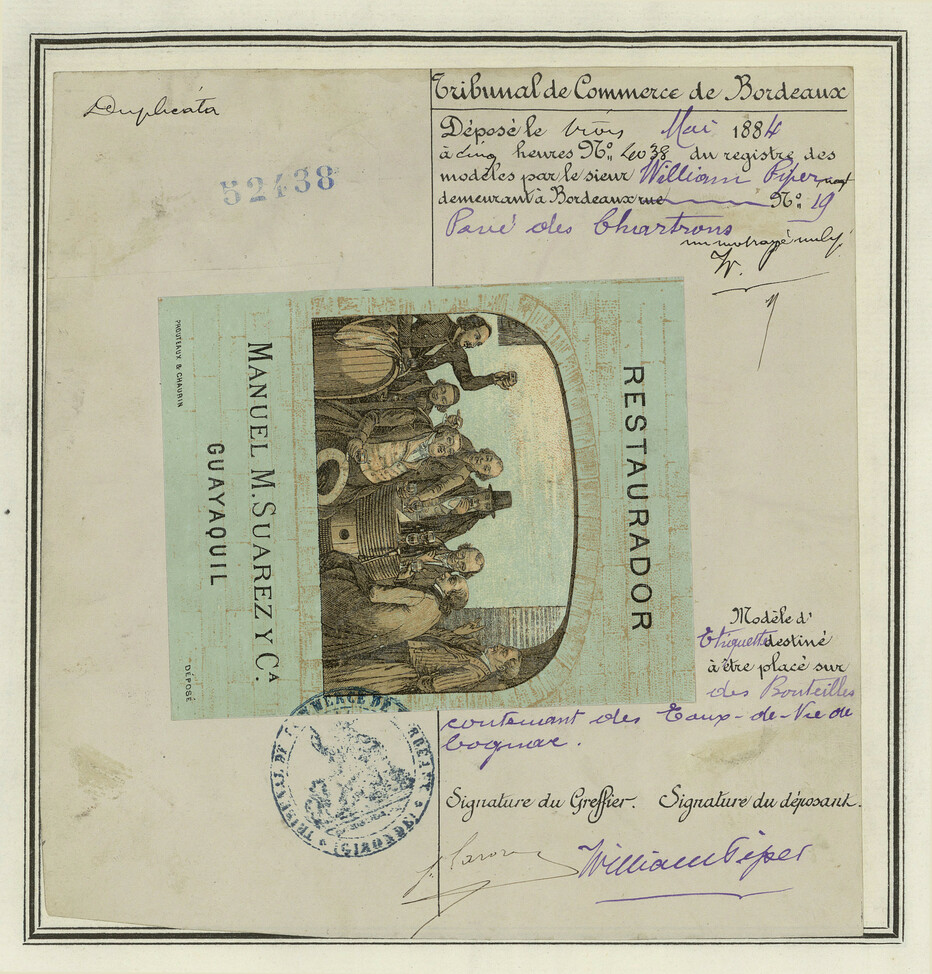 Duplicata
52438
Tribunal de Commerce de Bordeaux
Déposé le trois Mai 1884
à cinq heures N° 4038 du registre des
modèles par le sieur William Piper
demeurant à Bordeaux rue N° 19
Pavé des Chartrons
un mot rayé nul
W.
RESTAURADOR
MANUEL M. SUAREZ Y C.A
GUAYAQUIL
PROUTEAUX & CHAURIN
DÉPOSÉ
Modèle d'
Etiquette destiné
à être placé sur
des Bouteilles
contenant des Eaux-de-Vie de
Cognac.
TRIBUNAL DE COMMERCE DE BORDEAUX (GIRONDE)
Signature du Greffier. Signature du déposant.
William Piper